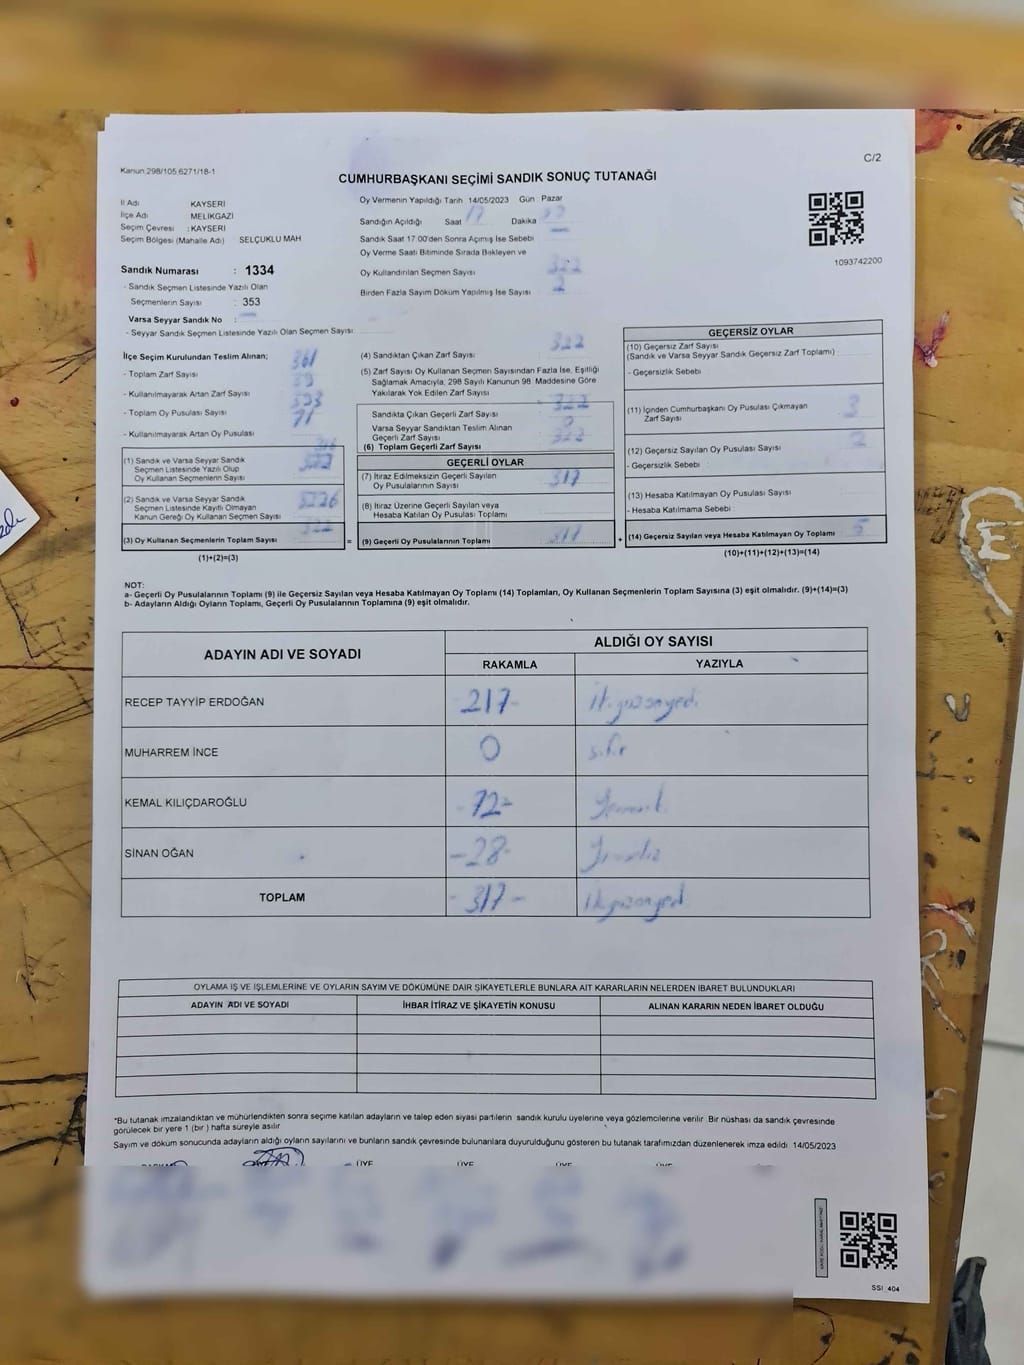 C/2
Kanun:298/105,6271/18-1
CUMHURBAŞKANI SEÇİMİ SANDIK SONUÇ TUTANAĞI
İl Adı KAYSERİ
İlçe Adı MELİKGAZİ
Seçim Çevresi : KAYSERİ
Seçim Bölgesi (Mahalle Adı) SELÇUKLU MAH
Sandık Numarası : 1334
- Sandık Seçmen Listesinde Yazılı Olan
Seçmenlerin Sayısı : 353
Varsa Seyyar Sandık No :
- Seyyar Sandık Seçmen Listesinde Yazılı Olan Seçmen Sayısı
Oy Vermenin Yapıldığı Tarih 14/05/2023 Gün Pazar
Sandığın Açıldığı Saat 17 Dakika
Sandık Saat 17:00'den Sonra Açımış İse Sebebi
Oy Verme Saati Bitiminde Sırada Bekleyen ve
Oy Kullandırılan Seçmen Sayısı 322
Birden Fazla Sayım Döküm Yapılmış İse Sayısı 2
1093742200
İlçe Seçim Kurulundan Teslim Alınan;
- Toplam Zarf Sayısı 361
- Kullanılmayarak Artan Zarf Sayısı
- Toplam Oy Pusulası Sayısı
- Kullanılmayarak Artan Oy Pusulası
(1) Sandık ve Varsa Seyyar Sandık
Seçmen Listesinde Yazılı Olup
Oy Kullanan Seçmenlerin Sayısı
(2) Sandık ve Varsa Seyyar Sandık
Seçmen Listesinde Kayıtlı Olmayan
Kanun Gereği Oy Kullanan Seçmen Sayısı
(3) Oy Kullanan Seçmenlerin Toplam Sayısı 322
(1)+(2)=(3)
(4) Sandıktan Çıkan Zarf Sayısı 322
(5) Zarf Sayısı Oy Kullanan Seçmen Sayısından Fazla İse, Eşitliği
Sağlamak Amacıyla, 298 Sayılı Kanunun 98. Maddesine Göre
Yakılarak Yok Edilen Zarf Sayısı
Sandıkta Çıkan Geçerli Zarf Sayısı 322
Varsa Seyyar Sandıktan Teslim Alınan
Geçerli Zarf Sayısı 0
(6) Toplam Geçerli Zarf Sayısı 322
GEÇERLİ OYLAR
(7) İtiraz Edilmeksizin Geçerli Sayılan
Oy Pusulalarının Sayısı 317
(8) İtiraz Üzerine Geçerli Sayılan veya
Hesaba Katılan Oy Pusulası Toplamı
= (9) Geçerli Oy Pusulalarının Toplamı 317
GEÇERSİZ OYLAR
(10) Geçersiz Zarf Sayısı
(Sandık ve Varsa Seyyar Sandık Geçersiz Zarf Toplamı)
- Geçersizlik Sebebi
(11) İçinden Cumhurbaşkanı Oy Pusulası Çıkmayan
Zarf Sayısı 3
(12) Geçersiz Sayılan Oy Pusulası Sayısı 2
- Geçersizlik Sebebi
(13) Hesaba Katılmayan Oy Pusulası Sayısı
- Hesaba Katılmama Sebebi
+ (14) Geçersiz Sayılan veya Hesaba Katılmayan Oy Toplamı 5
(10)+(11)+(12)+(13)=(14)
NOT:
a- Geçerli Oy Pusulalarının Toplamı (9) ile Geçersiz Sayılan veya Hesaba Katılmayan Oy Toplamı (14) Toplamları, Oy Kullanan Seçmenlerin Toplam Sayısına (3) eşit olmalıdır. (9)+(14)=(3)
b- Adayların Aldığı Oyların Toplamı, Geçerli Oy Pusulalarının Toplamına (9) eşit olmalıdır.
ADAYIN ADI VE SOYADI ALDIĞI OY SAYISI
RAKAMLA YAZIYLA
RECEP TAYYİP ERDOĞAN -217-
MUHARREM İNCE 0 sıfır
KEMAL KILIÇDAROĞLU -72-
SİNAN OĞAN -28-
TOPLAM -317-
OYLAMA İŞ VE İŞLEMLERİNE VE OYLARIN SAYIM VE DÖKÜMÜNE DAİR ŞİKAYETLERLE BUNLARA AİT KARARLARIN NELERDEN İBARET BULUNDUKLARI
ADAYIN ADI VE SOYADI İHBAR İTİRAZ VE ŞİKAYETİN KONUSU ALINAN KARARIN NEDEN İBARET OLDUĞU
*Bu tutanak imzalandıktan ve mühürlendikten sonra seçime katılan adayların ve talep eden siyasi partilerin sandık kurulu üyelerine veya gözlemcilerine verilir. Bir nüshası da sandık çevresinde
görülecek bir yere 1 (bir) hafta süreyle asılır
Sayım ve döküm sonucunda adayların aldığı oyların sayılarını ve bunların sandık çevresinde bulunanlara duyurulduğunu gösteren bu tutanak tarafımızdan düzenlenerek imza edildi. 14/05/2023
ÜYE ÜYE ÜYE ÜYE
SSI_404